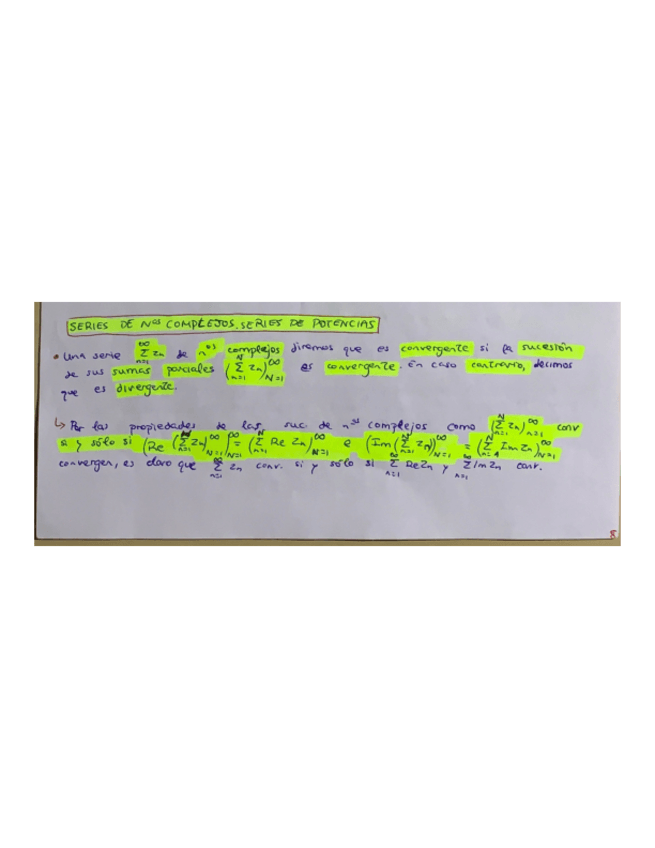 SERIES DE Nos COMPLEJOS. SERIES DE POTENCIAS
• Una serie ∑_{n=1}^∞ zn de nos complejos diremos que es convergente si la sucesión
de sus sumas parciales (∑_{n=1}^N zn)_{N=1}^∞ es convergente. En caso contrario, decimos
que es divergente.
↳ Por las propiedades de las suc. de nos complejos como (∑_{n=1}^N zn)_{n=1}^∞ conv
si y sólo si (Re (∑_{n=1}^N zn)_{N=1}^∞)_{N=1}^∞ = (∑_{n=1}^N Re zn)_{N=1}^∞ e (Im(∑_{n=1}^N zn))_{N=1}^∞ = (∑_{n=1}^N Im zn)_{N=1}^∞
convergen, es claro que ∑_{n=1}^∞ zn conv. si y sólo si ∑_{n=1}^∞ Re zn y ∑_{n=1}^∞ Im zn conv.